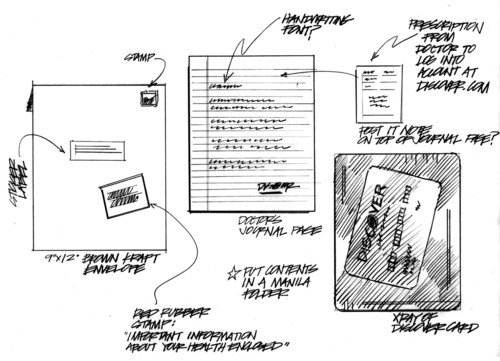 HANDWRITING
FONT?
PRESCRIPTION
FROM
DOCTOR TO
LOG INTO
ACCOUNT AT
DISCOVER.COM
STAMP
STICKER
LABEL
POST IT NOTE
ON TOP OF JOURNAL PAGE?
DISCOVER
DOCTORS
JOURNAL PAGE
DISCOVER
9"X12" BROWN KRAFT
ENVELOPE
☆ PUT CONTENTS
IN A MANILA
FOLDER
XRAY OF
DISCOVER CARD
RED RUBBER
STAMP:
"IMPORTANT INFORMATION
ABOUT YOUR HEALTH ENCLOSED"